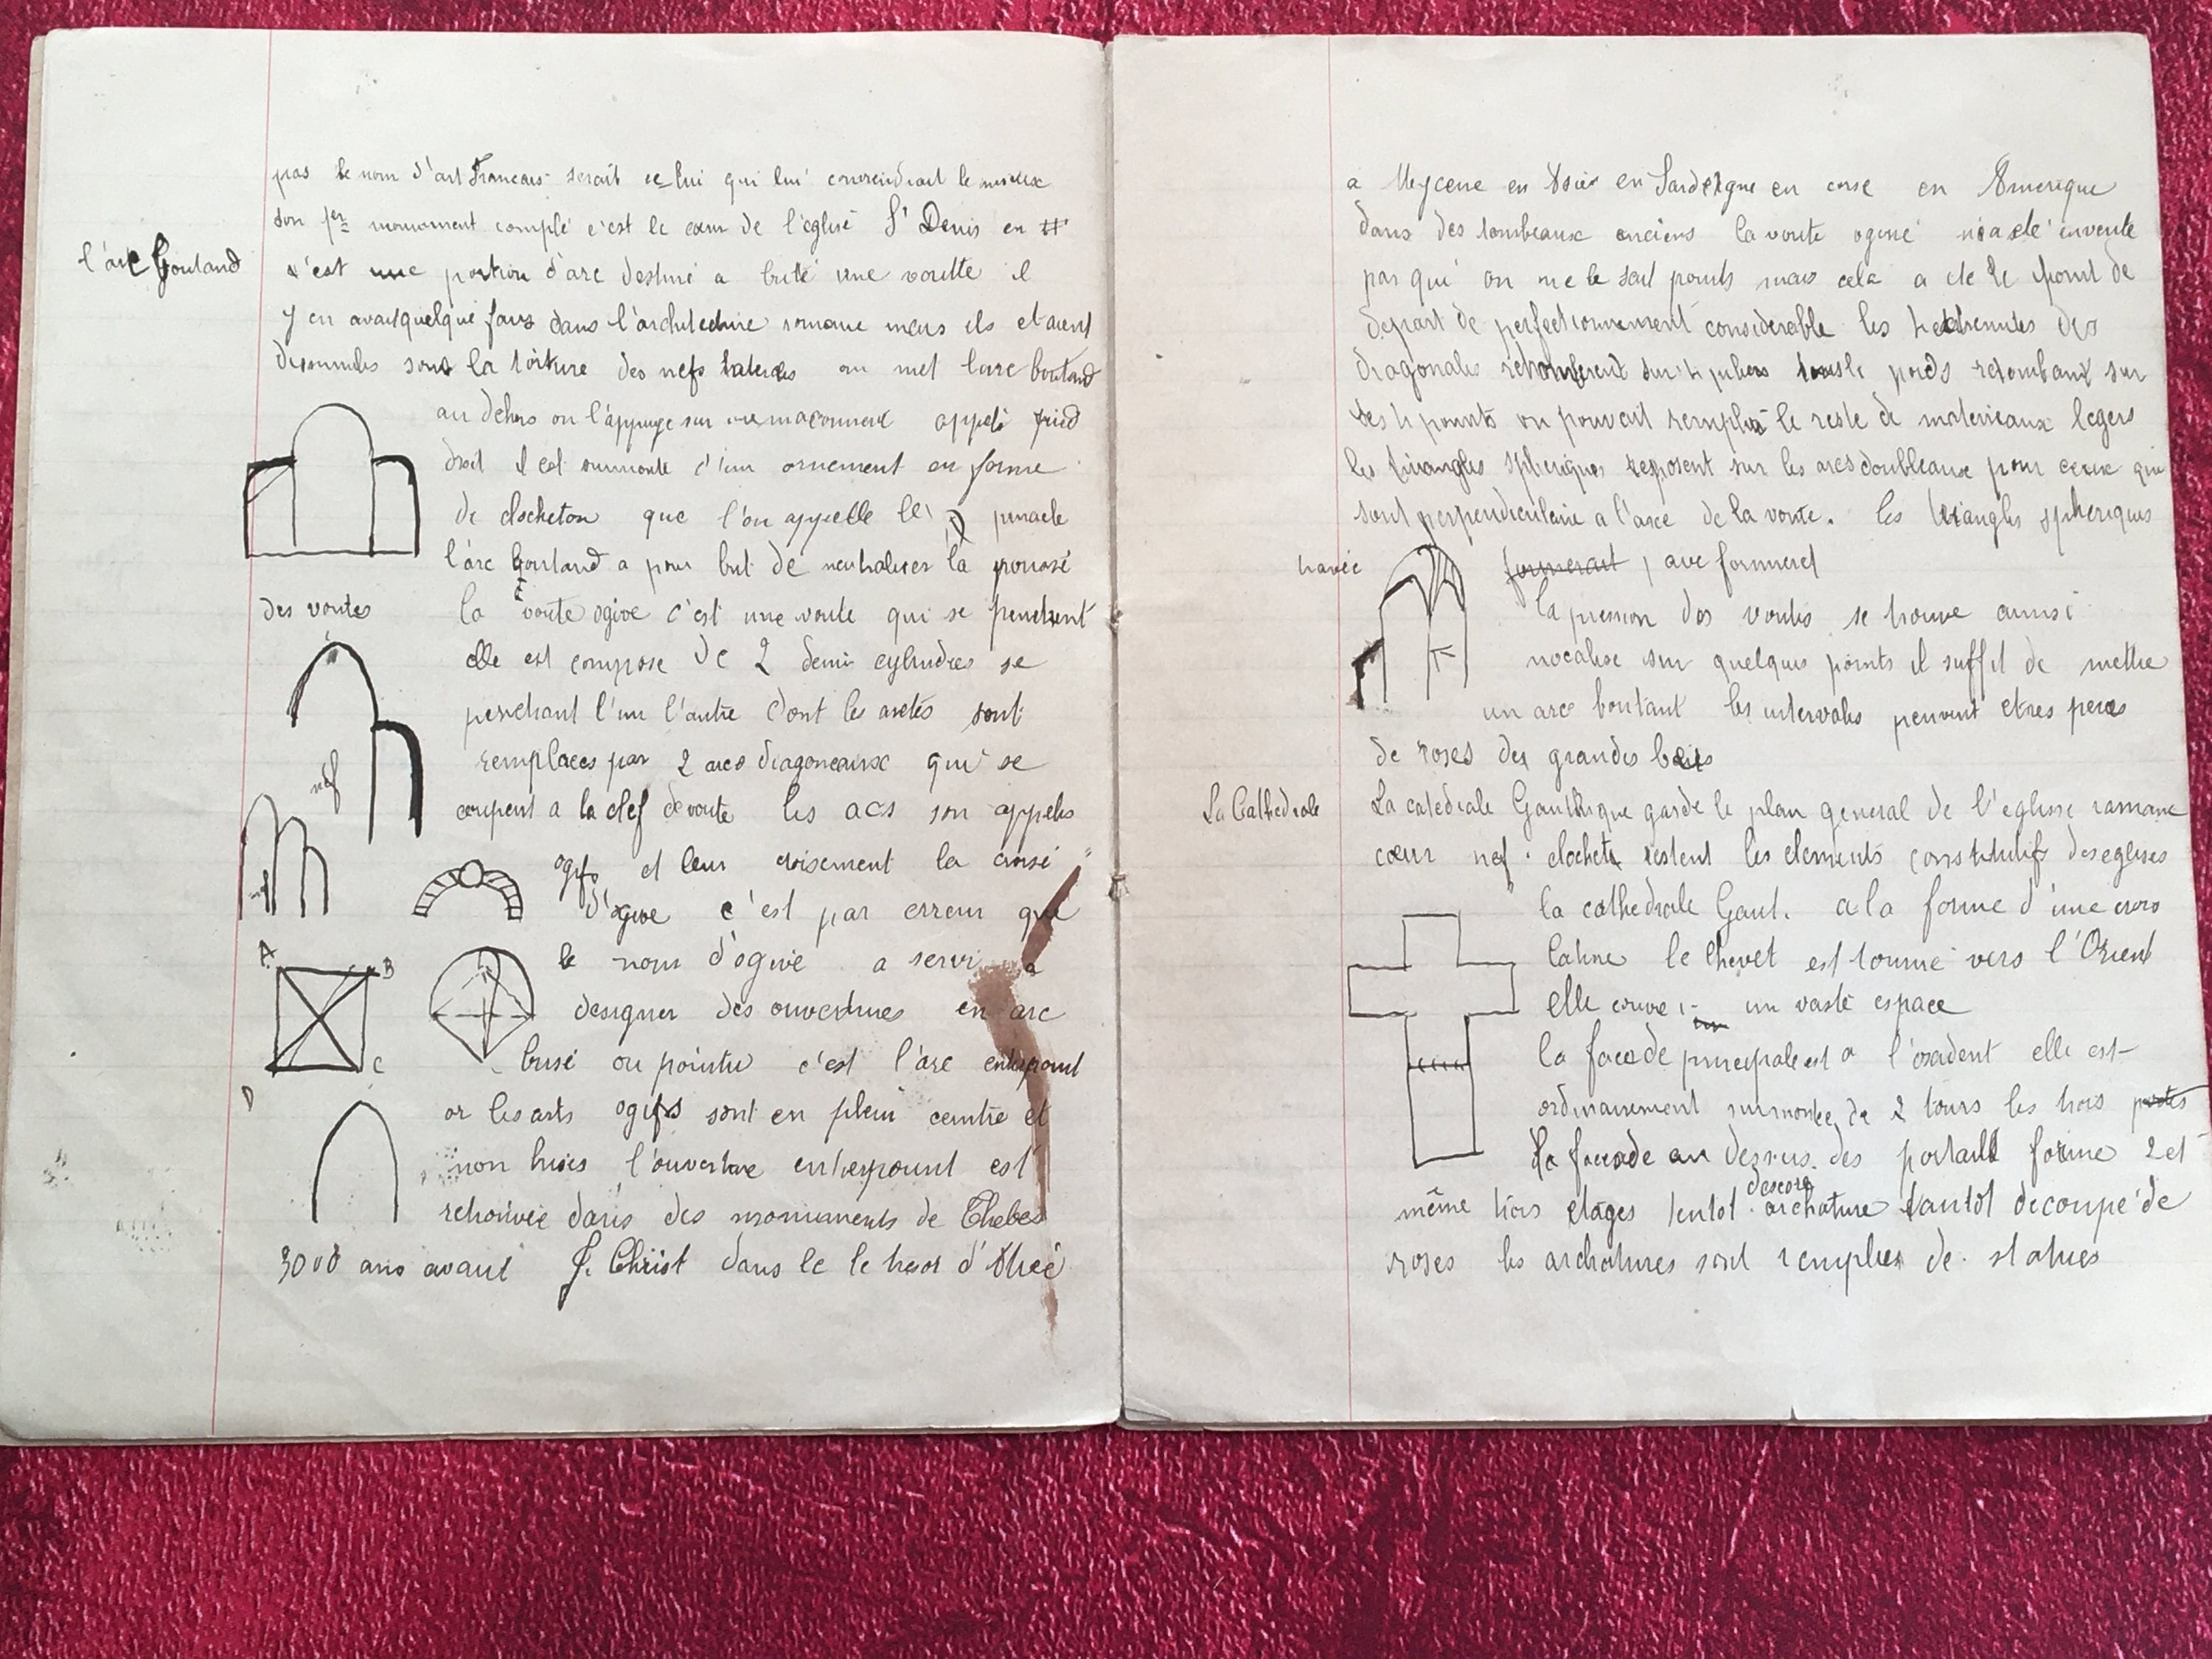 pas le nom d'art Francais serait celui qui lui conviendrait le mieux
son 1er monument complé c'est le cœur de l'église St Denis en
l'arc boutand
c'est une portion d'arc destiné a buté une voutte il
y en avait quelque fois dans l'architecture romane mais ils etaient
dissimulés sous la toiture des nefs laterales on met l'arc boutand
au dehors on l'appuye sur une maconnerie appelé pied
droit il est surmonté d'un ornement en forme
de clocheton que l'on appelle le pinacle
l'arc boutand a pour but de neutraliser la poussé
des voutes
la voute ogive c'est une voute qui se penetrent
elle est compose de 2 demi cylindres se
penetrant l'un l'autre dont les aretes sont
remplaces par 2 arcs diagoneaux qui se
nef
coupent a la clef de voute les acs son appelés
ogifs et leur croisement la croisé
nef
d'ogive c'est par erreur que
A B
le nom d'ogive a servi a
designer des ouvertures en arc
C
D
brisé ou pointu c'est l'arc entrepoint
or les arts ogifs sont en plein ceintre et
non brisés l'ouverture entrepoint est
retrouvée dans des monuments de Thebes
3000 ans avant J. Christ dans le le tresor d'Atreé
a Mycene en Asie en Sardeigne en corse en Amerique
dans des tombeaux anciens la voute ogive n'a été invente
par qui on ne le sait points mais cela a ete le point de
depart de perfectionnement considerable les des
diagonales retomberent sur 4 piliers tousle poids retombant sur
ses 4 points on pouvait remplir le reste de materieaux legers
les triangles spheriques reposent sur les arcs doubleaux pour ceux qui
sont perpendiculaire a l'axe de la voute. les triangles spheriques
travée
formerait, arc formeret
la pression des voutes se trouve ainsi
localise sur quelques points il suffit de mettre
un arc boutant les intervales peuvent etres percs
de roses des grandes baies
La Cathedrale
La catedrale Gauthique garde le plan general de l'eglise romane
cœur nef clochets restent les elements constitutifs des eglises
la cathedrale Gaut. a la forme d'une crois
latine le chevet est tourné vers l'Orient
elle couvre un vaste espace
la facade principale est a l'occident elle est
ordinairement surmontée de 2 tours les trois portes
La facade au dessus des portaill forme 2 et
décoré
même trois etages tentot archature tantot decoupé de
roses les archatures sont remplies de statues